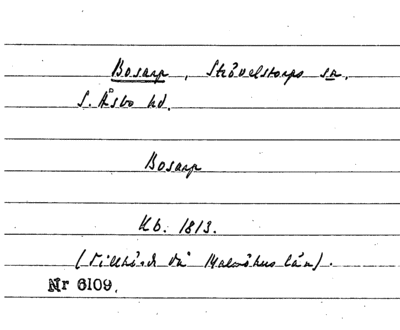 Bosarp, Strövelstorps sn.
S. Åsbo hd.
Bosarp
Kb. 1813.
(Tillhörde då Malmöhus län).
Nr 6109.